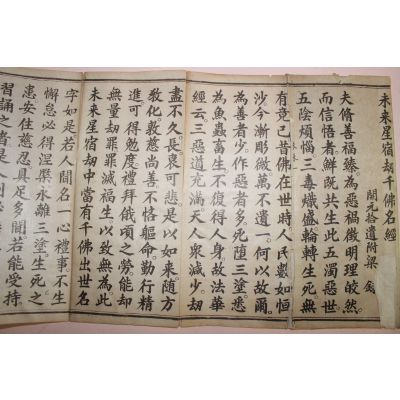 未来星宿劫千佛名經
開元拾遺附梁錄
夫脩善福臻為惡禍徵明理皎然
而信悟者鮮既共生此五濁惡世
五陰煩惱三毒熾盛輪轉生死無
有竟已昔佛在世時人民數如恒
沙今漸彫微萬不遺一何以故爾
為善者少作惡者多死墮三塗悉
為魚蟲畜生不復得人身故法華
經云三惡道充滿天人衆減少劫
盡不久長哀可悲是以如来隨方
教化敦慈尚善不悋軀命勤行精
進可得勉度禮拜俄頃之勞能却
無量劫罪罪滅福生以致無為此
未来星宿劫中當有千佛出世名
字如是若人聞名一心禮事不生
懈怠必得涅槃永離三塗生死之
患安住慈忍具足多聞若能受持
習誦之者是人